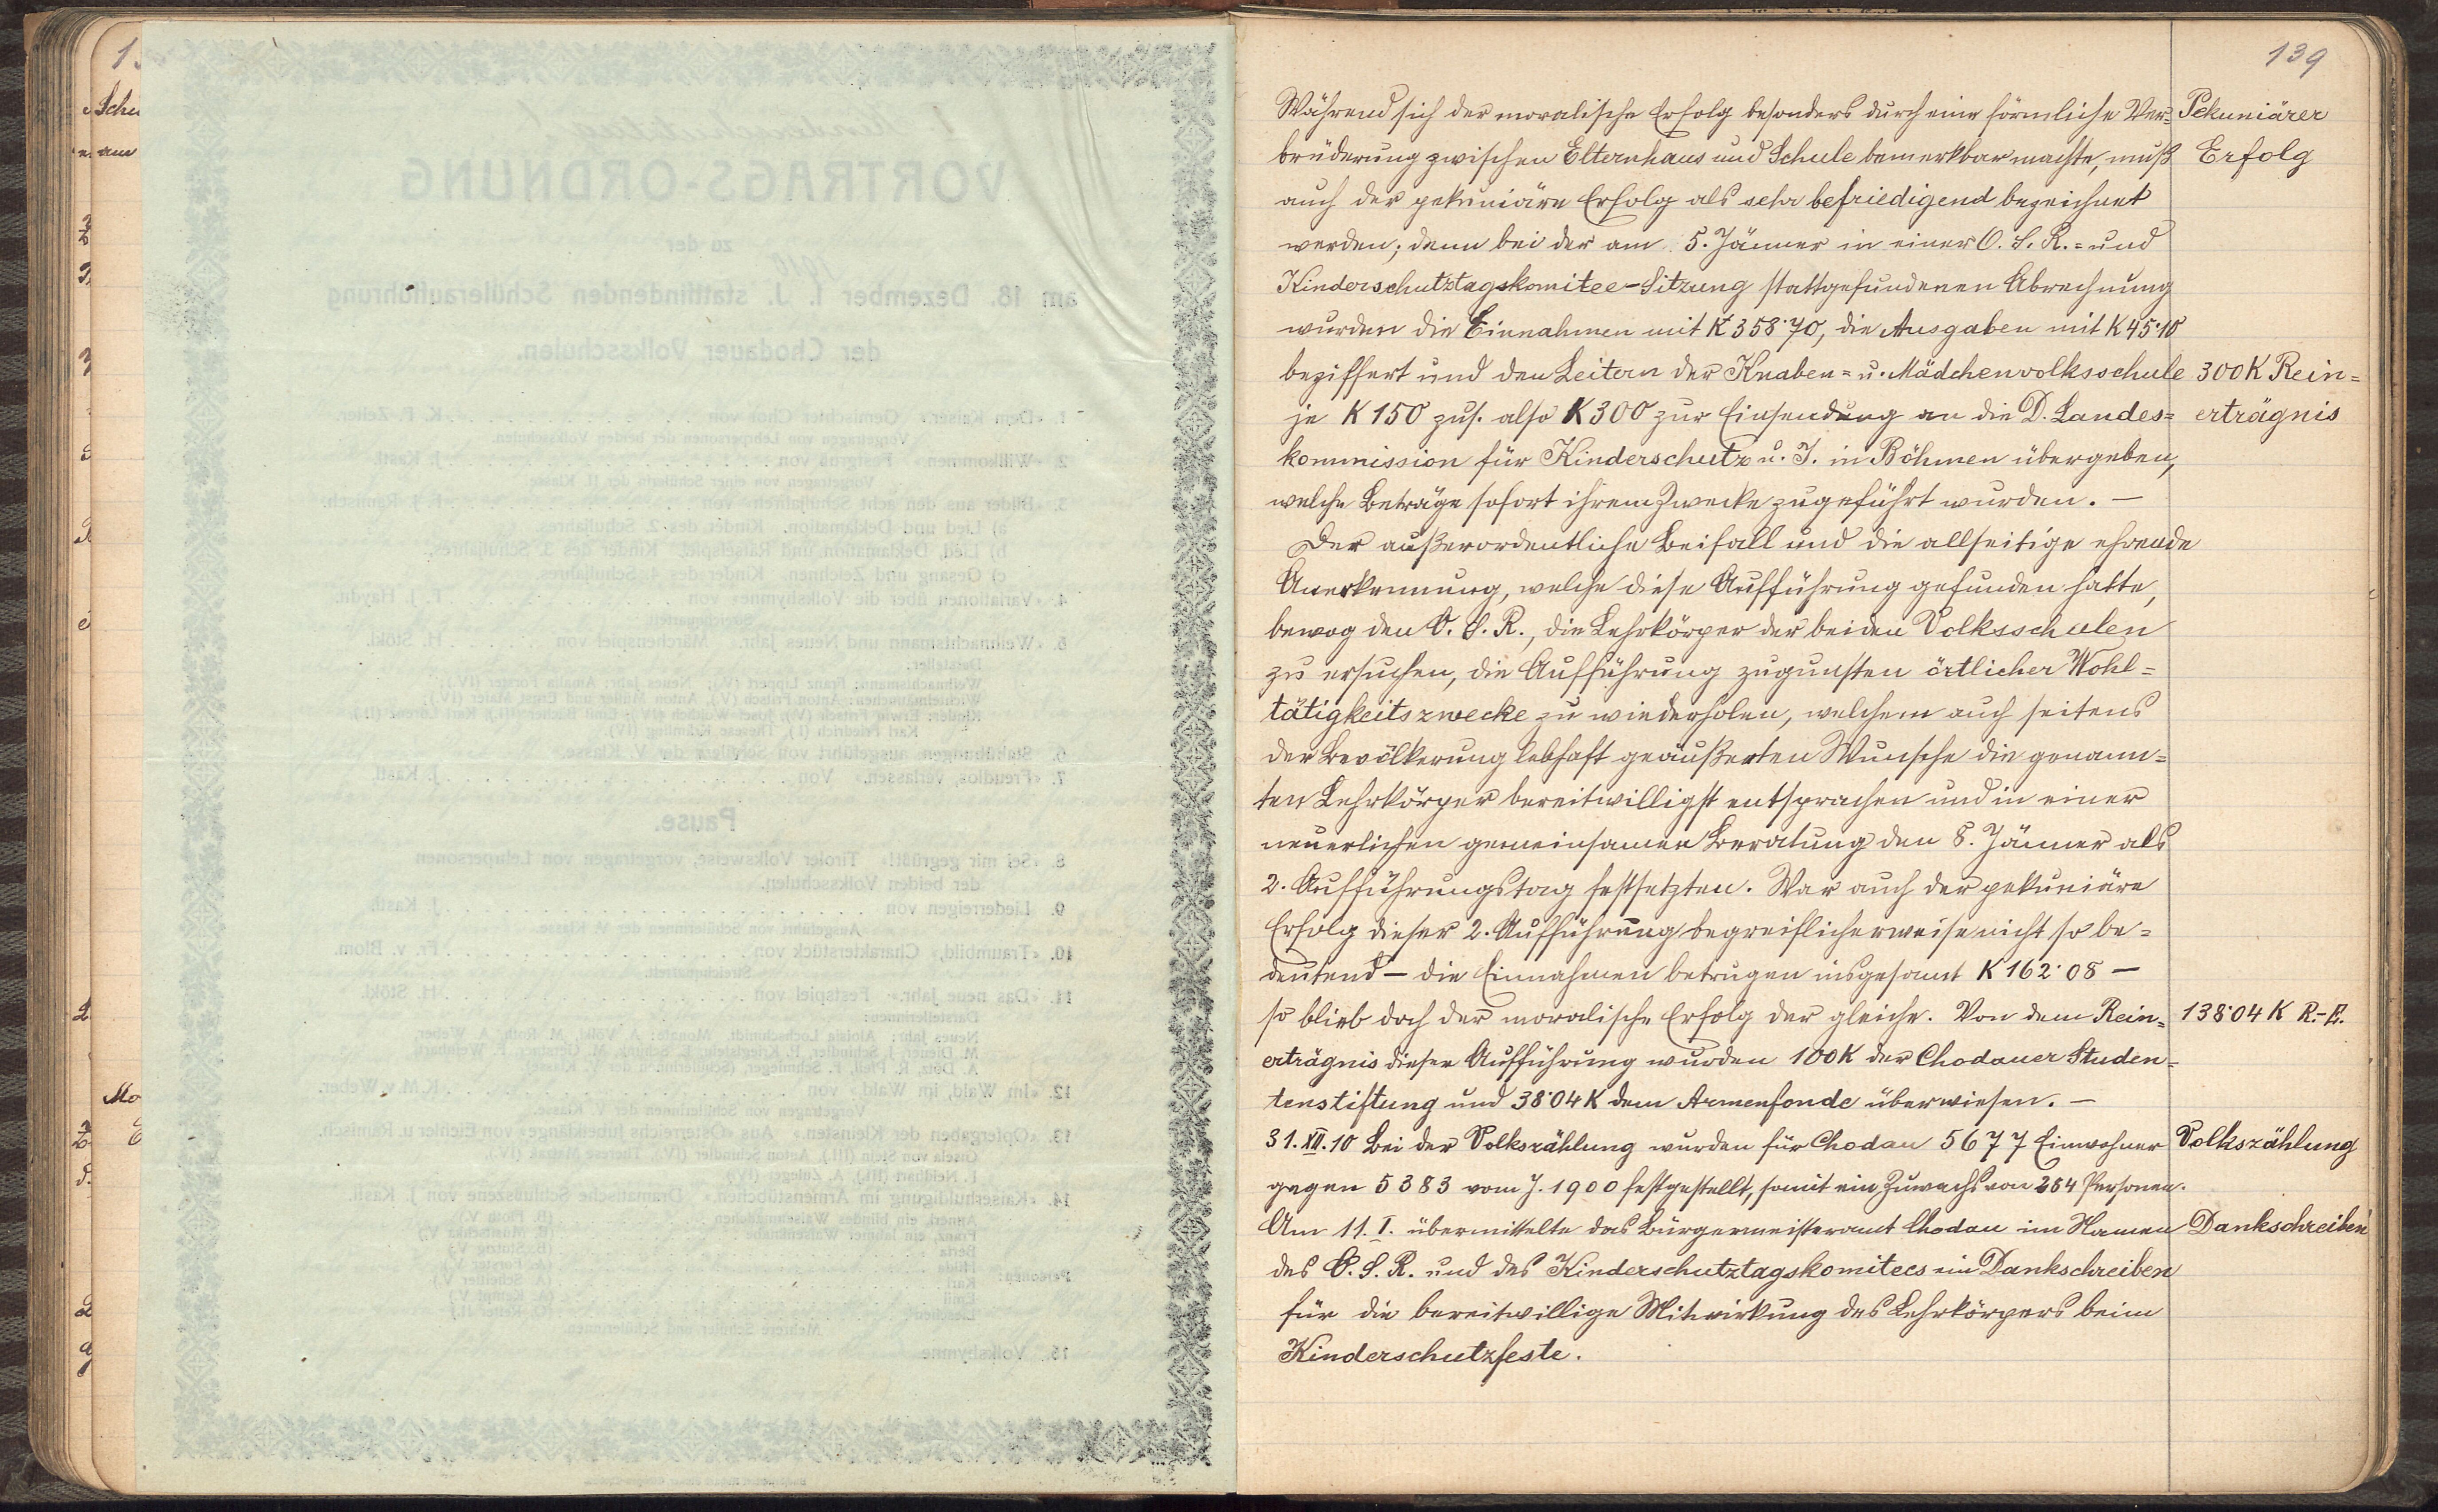 139
Während sich der moralische Erfolg besonders durch eine förmliche Ver=
brüderung zwischen Elternhaus und Schule bemerkbar machte, muß
auch der pekuniäre Erfolg als sehr befriedigend bezeichnet
werden; denn bei der am 5. Jänner in einer O. S. R. = und
Kinderschutztagskomitee-Sitzung stattgefundenen Abrechnung
wurden die Einnahmen mit K 358·70, die Ausgaben mit K 45·10
beziffert und den Leitern der Knaben= u. Mädchenvolksschule
je K 150 zus. also K 300 zur Einsendung an die D. Landes=
kommission für Kinderschutz u. J. in Böhmen übergeben,
welche Beträge sofort ihrem Zwecke zugeführt wurden. —
Der außerordentliche Beifall und die allseitige ehrende
Anerkennung, welche diese Aufführung gefunden hatte,
bewog den O. S. R., die Lehrkörper der beiden Volksschulen
zu ersuchen, die Aufführung zugunsten örtlicher Wohl=
tätigkeitszwecke zu wiederholen, welchem auch seitens
der Bevölkerung lebhaft geäußerten Wunsche die genann=
ten Lehrkörper bereitwilligst entsprachen und in einer
neuerlichen gemeinsamen Beratung den 8. Jänner als
2. Aufführungstag festsetzten. War auch der pekuniäre
Erfolg dieser 2. Aufführung begreiflicherweise nicht so be=
deutend — die Einnahmen betrugen insgesamt K 162·08 —
so blieb doch der moralische Erfolg der gleiche. Von dem Rein=
erträgnis dieser Aufführung wurden 100 K der Chodauer Studen=
tenstiftung und 38·04 K dem Armenfonde überwiesen. —
31. XII. 10 Bei der Volkszählung wurden für Chodau 5677 Einwohner
gegen 5383 vom J. 1900 festgestellt, somit ein Zuwachs von 284 Personen.
Am 11. I. übermittelte das Bürgermeisteramt Chodau im Namen
des O. S. R. und des Kinderschutztagskomitees ein Dankschreiben
für die bereitwillige Mitwirkung des Lehrkörpers beim
Kinderschutzfeste.
Pekuniärer
Erfolg
300 K Rein=
erträgnis
138·04 K R.-E.
Volkszählung
Dankschreiben
VORTRAGS-ORDNUNG
zu der
1910
am 18. Dezember l. J. stattfindenden Schüleraufführung
der Chodauer Volksschulen.
1. «Dem Kaiser.» Gemischter Chor von K. P. Zeller.
Vorgetragen von Lehrpersonen der beiden Volksschulen.
2. «Willkommen.» Festgruß von J. Kastl.
Vorgetragen von einer Schülerin der II. Klasse.
3. «Bilder aus den acht Schuljahren» von F. J. Ramisch.
a) Lied und Deklamation. Kinder des 2. Schuljahres.
b) Lied, Deklamation und Rätselspiel. Kinder des 3. Schuljahres.
c) Gesang und Zeichnen. Kinder des 4. Schuljahres.
4. «Variationen über die Volkshymne» von F. J. Haydn.
5. «Weihnachtsmann und Neues Jahr.» Märchenspiel von H. Stökl.
Darsteller:
Weihnachtsmann: Franz Lippert (V.), Neues Jahr: Amalia Forster (IV.),
6. Stabübungen, ausgeführt von Schülern der V. Klasse.
7. «Freudlos, Verlassen.» Von J. Kastl.
Pause.
8. «Sei mir gegrüßt!» Tiroler Volksweise, vorgetragen von Lehrpersonen
der beiden Volksschulen.
9. Liederreigen von J. Kastl.
Ausgeführt von Schülerinnen der V. Klasse.
10. «Traumbild,» Charakterstück von Fr. v. Blom.
11. «Das neue Jahr.» Festspiel von H. Stökl.
Darstellerinnen:
12. «Im Wald, im Wald» von K. M. v. Weber.
Vorgetragen von Schülerinnen der V. Klasse.
13. «Opfergaben der Kleinsten.» Aus «Österreichs Jubelklänge» von Eichler u. Ramisch.
14. «Kaiserhuldigung im Armenstübchen.» Dramatische Schlußszene von J. Kastl.
Personen:
Mehrere Schüler und Schülerinnen.
15. Volkshymne